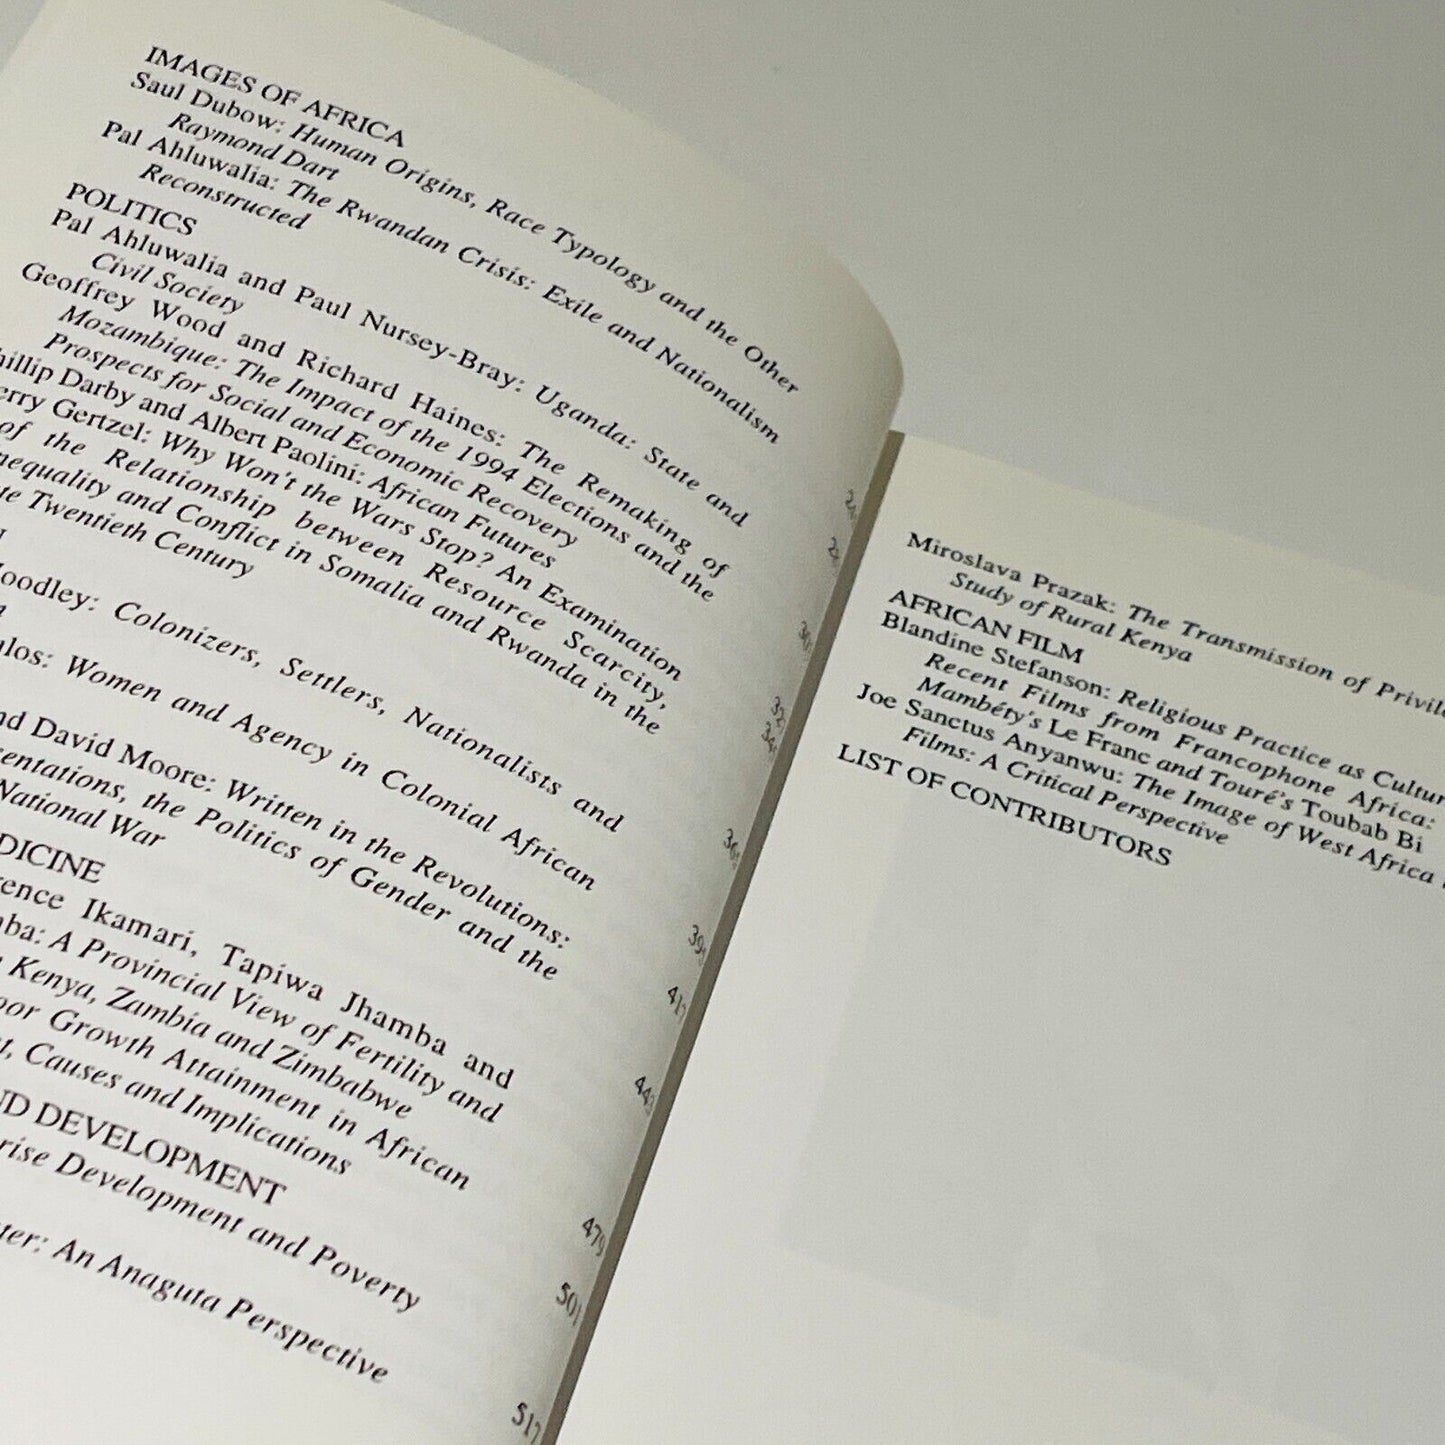 IMAGES OF AFRICA
Saul Dubow: Human Origins, Race Typology and the Other
Raymond Dart
Pal Ahluwalia: The Rwandan Crisis: Exile and Nationalism
Reconstructed
POLITICS
Pal Ahluwalia and Paul Nursey-Bray: Uganda: State and
Civil Society
Geoffrey Wood and Richard Haines: The Remaking of
Mozambique: The Impact of the 1994 Elections and the
Prospects for Social and Economic Recovery
hillip Darby and Albert Paolini: African Futures
erry Gertzel: Why Won't the Wars Stop? An Examination
of the Relationship between Resource Scarcity,
nequality and Conflict in Somalia and Rwanda in the
te Twentieth Century
oodley: Colonizers, Settlers, Nationalists and
ulos: Women and Agency in Colonial African
nd David Moore: Written in the Revolutions:
entations, the Politics of Gender and the
National War
DICINE
rence Ikamari, Tapiwa Jhamba and
ba: A Provincial View of Fertility and
Kenya, Zambia and Zimbabwe
oor Growth Attainment in African
t, Causes and Implications
ND DEVELOPMENT
rise Development and Poverty
ter: An Anaguta Perspective
32
34
36
39
417
443
479
501
517
Miroslava Prazak: The Transmission of Privile
Study of Rural Kenya
AFRICAN FILM
Blandine Stefanson: Religious Practice as Cultur
Recent Films from Francophone Africa:
Mambéty's Le Franc and Touré's Toubab Bi
Joe Sanctus Anyanwu: The Image of West Africa
Films: A Critical Perspective
LIST OF CONTRIBUTORS